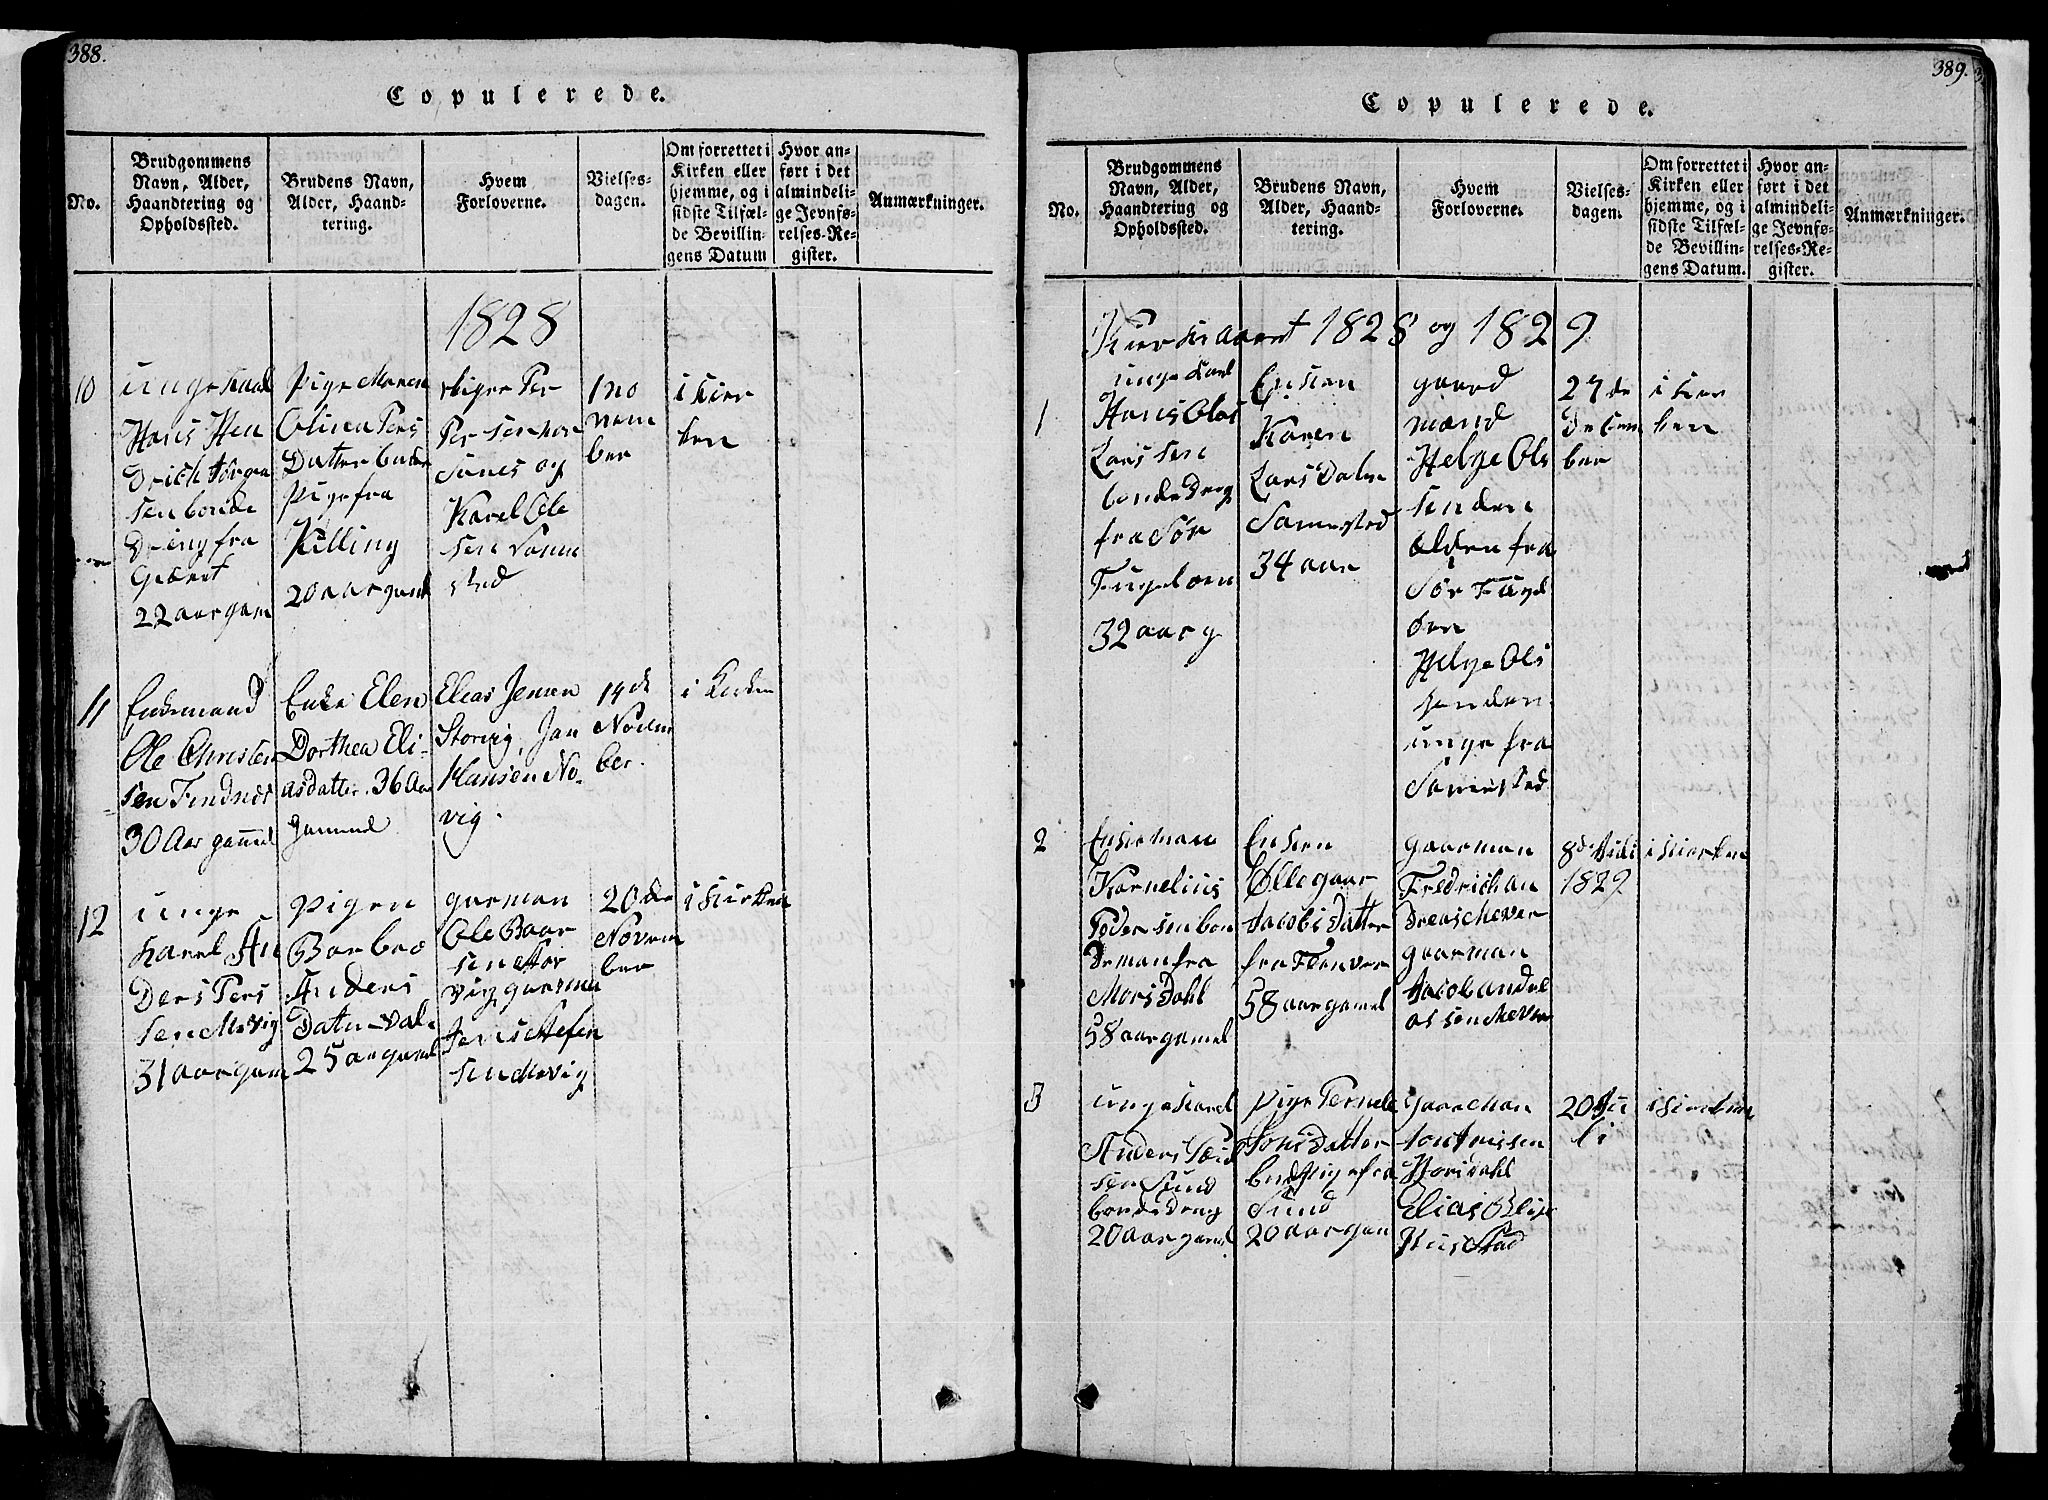 388.
Copulerede.
No.
Brudgommens
Navn, Alder,
Haandtering og
Opholdssted.
Brudens Navn,
Alder, Haand-
tering.
Hvem
Forloverne.
Vielses-
dagen.
Om forrettet i
Kirken eller
hjemme, og i
sidste Tilfæl-
de Bevillin-
gens Datum
Hvor an-
ført i det
almindeli-
ge Jevnfø-
relses-Re-
gister.
Anmærkninger.
1828
10
unge Karl
Hans Hen
Drich Jørgen
sen bonde
Dreng fra
22 aar gam
Pige Maren
Olina Pers
Datter bonde
Pige fra
Killing
20 aar gaml
Per
Per sen
og
Karel Ole
sen
sted
1 no
vem
ber
i Kier
ken
11
Enkemand
Ole Christen
sen Tendnes
30 Aar gammel
Enke Elen
Dorthea Eli-
asdatter. 36 Aar
gammel
Elias Jensen
Storvig, Jan
Hansen No-
vig.
14de
Novem
ber.
i Kirken
12
unge
Karel An
Ders Pers
sen Mevig
31 aar gam
Pigen
Barbro
Anders
Dater Val-
25 aar gamel
garman
Ole Baar
sen Stor
vig garman
Jens Stefen
sen Mevig
20de
Novem
ber
i Kirken
389.
Copulerede.
No.
Brudgommens
Navn, Alder,
Haandtering og
Opholdssted.
Brudens Navn,
Alder, Haand-
tering.
Hvem
Forloverne.
Vielses-
dagen.
Om forrettet i
Kirken eller
hjemme, og i
sidste Tilfæl-
de Bevillin-
gens Datum.
Hvor an-
ført i det
almindeli-
ge Jevnfø-
relses-Re-
gister.
Anmærkninger.
Kirkeaaret 1828 og 1829
1
unge Karl
Hans Olai
Lars sen
bonde Dreng
fra Sør
Fugeløen
32 aar g
Enken
Karen
Lars Dater
Sannested
34 aar
gaard
mand
Helge Ols
sen den
ælden fra
Sør Fugel
øen
Helge Ols
sen den
unge fra
Sannested
27de
Desem
ber
i Kier
ken
2
Enkeman
Kornelius
Peder sen bon
Deman fra
Morsdahl
58 aar gamel
Enken
Ellegaar
Jacobs Datter
fra Flenver
58 aar gamel
gaarman
Fredrich an
Dreas Mever
gaarman
Jacob andre
as sen Mever
8de Juli
1829
i Kierken
3
unge Karel
Anders
sen Sund
bonde Dreng
20 aar gamel
Pige Pernele
Jons Datter
bond Pige fra
Sund
20 aar gam
gaar Man
Jon
Morsdahl
Elias
20 Ju
li
i Kierken